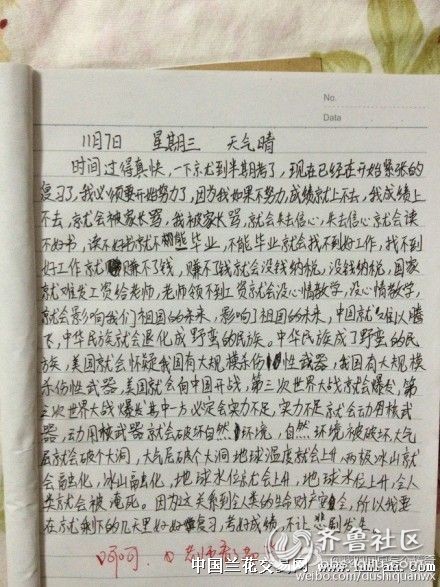 No.
Data
11月7日 星期三 天气晴
时间过得真快,一下就到半期考了,现在已经进开始紧张的
复习了,我必须要开始努力了,因为我如果不努力,成绩就上不去,我成绩上
不去,就会被家长骂,我被家长骂,就会失去信心,失去信心就会读
不好书,读不好书就不能毕业,不能毕业就会找不到好工作,找不到
好工作就赚不了钱,赚不了钱就会没钱纳税,没钱纳税,国家
就难发工资给老师,老师领不到工资就会没心情教学,没心情教学,
就会影响我们祖国的未来,影响了祖国的未来,中国就难以腾
飞,中华民族就会退化成野蛮的民族。中华民族成了野蛮的民
族,美国就会怀疑我国有大规模杀伤性武器,我国有大规模
杀伤性武器,美国就会向中国开战,第三次世界大战就会爆发,第
三次世界大战爆发其中一方必定会实力不足,实力不足就会动用核武
器,动用核武器就会破坏自然环境,自然环境被破坏,大气
层就会破个大洞,大气层破个大洞地球温度就会上升,两极冰山就
会融化,冰山融化,地球水位就会上升,地球水位上升,全人
类就会被淹死。因为这关系到全人类的生命财产安全,所以我要
在就剩下的几天里好好复习,考好成绩,不让悲剧发生。
呵呵。
齐鲁社区
qilushequnwx
中国兰花交易网 www.hmlan.com